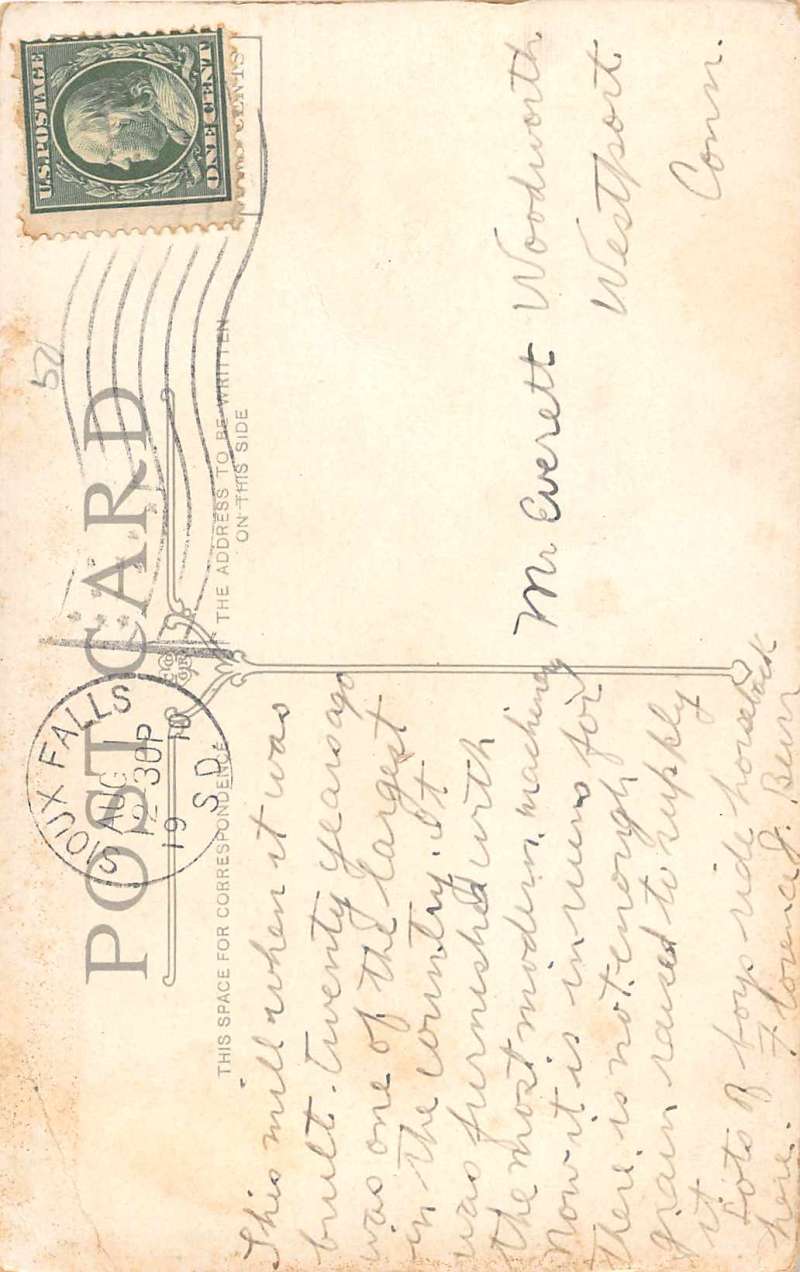 POST CARD
THIS SPACE FOR CORRESPONDENCE
THE ADDRESS TO BE WRITTEN
ON THIS SIDE
U.S. POSTAGE
ONE CENT
CENTS
SIOUX FALLS
AUG
12-30P
19 10
S.D.
50
This mill when it was
built. twenty years ago
was one of the largest
in the country. It
was furnished with
the most modern machinery
Now it is in ruins for
There is not enough
grain raised to supply
it
Lots of boys ride horseback
here. Florence J. Burr
Mr Everett Woodworth
Westport
Conn.